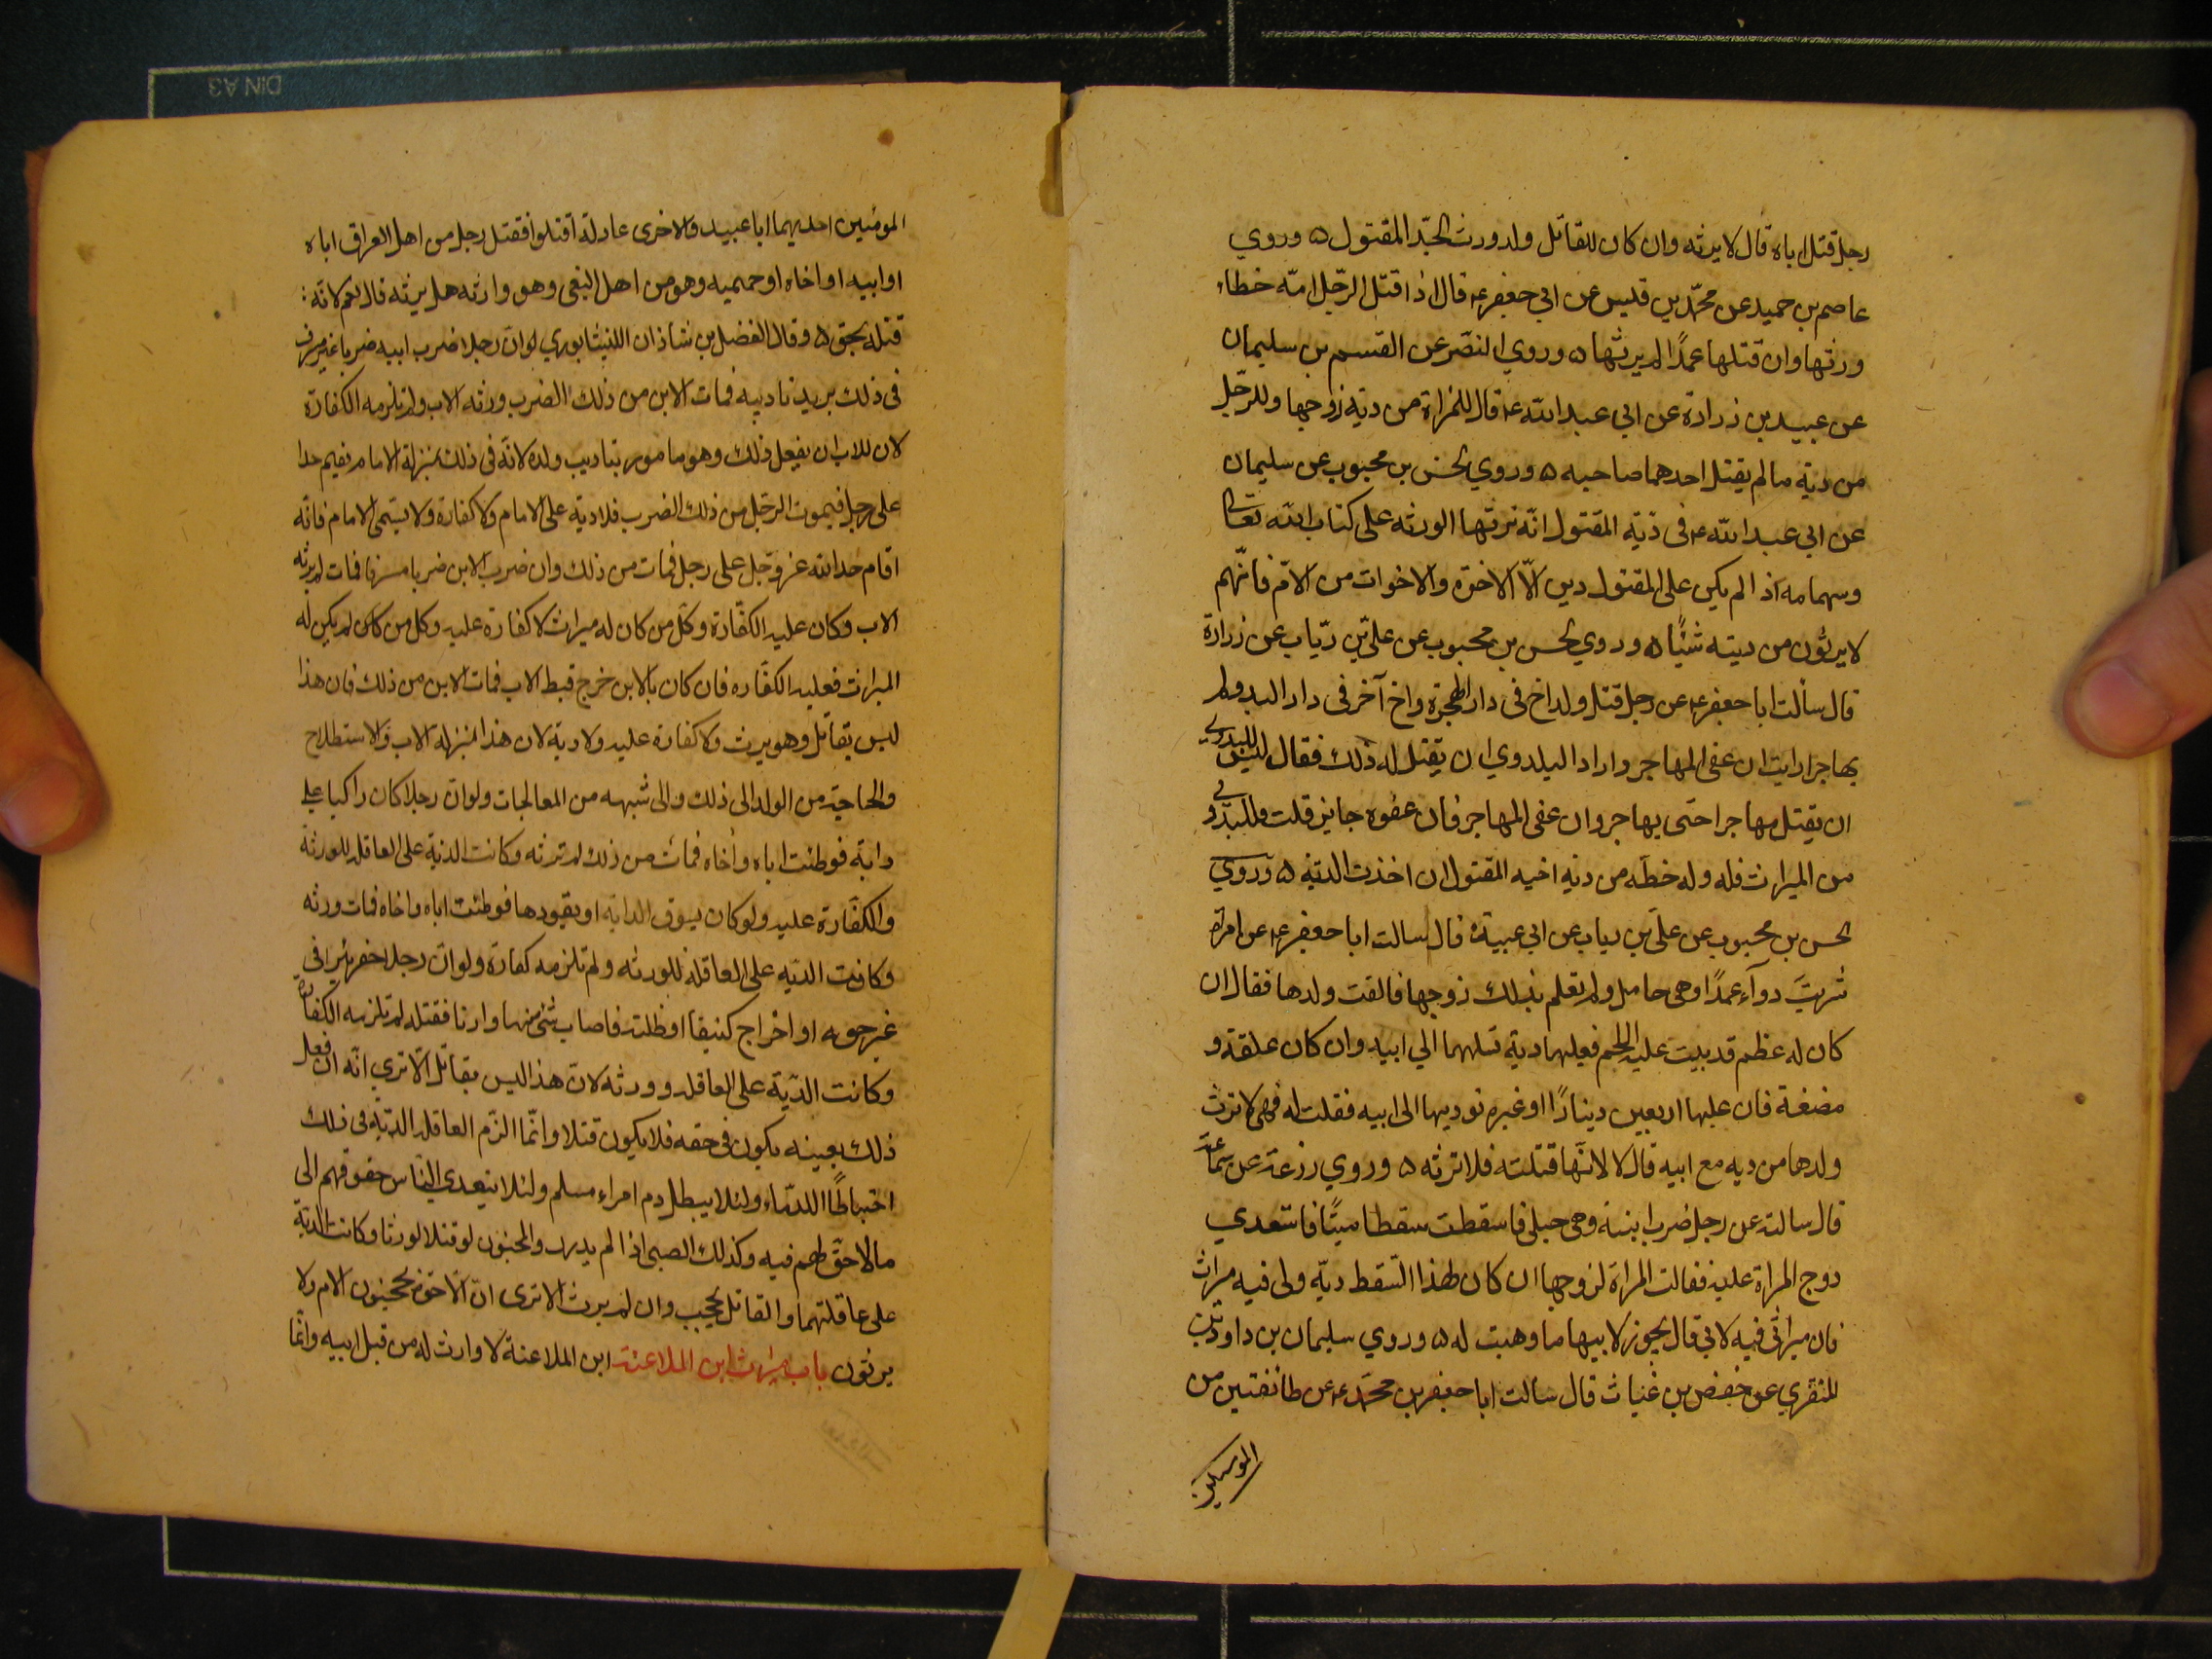 رجل قتل اباه قال لا يرثه وان كان للقاتل ولد ورث الجدّ المقتول ۵ وروي
عاصم بن حميد عن محمّد بن قليس عن ابي جعفر ع قال اذا قتل الرّجل امّه خطاء
ورثها وان قتلها عمدًا لم يرثها ۵ وروي النضر عن القسم بن سليمان
عن عبيد بن زرارة عن ابي عبد الله ع قال للمراة من دية زوجها وللرّجل
من دية ما لم يقتل احدهما صاحبه ۵ وروي الحسن بن محبوب عن سليمان
عن ابي عبد الله ع في دّية المقتول انّه يرثها الورثه على كتاب الله تعالى
وسهامه اذ الم يكن على المقتول دين الّا الاخوة والاخوات من الامّ فانّهم
لا يرثون من ديته شيًا ۵ وروي الحسن بن محبوب عن علي بن ريّاب عن زرارة
قال سألت ابا جعفر ع عن رجل قتل ولد اخ في دار الهجرة واخ آخر في دار البدو ولم
يهاجر ارايت ان عفى المهاجر واراد البلدوي ان يقتل له ذلك فقال ليس للبدوي
ان يقتل مهاجرا حتى يهاجر وان عفى المهاجر فان عفوه جايز قلت وللبدوي
من الميراث فله وله خطّه من دية اخيه المقتول ان اخذت الدية ۵ وروي
الحسن بن محبوب عن علي بن رياب عن ابي عبيدة قال سالت ابا جعفر ع عن امراة
شربت دوآء عمدًا وهي حامل ولم تعلم بذلك زوجها فالقت ولدها فقال ان
كان له عظم قد نبيت عليه اللحم فعليها دية تسلهما الي ابيه وان كان علقة و
مضغة فان عليها اربعين دينارًا او غيره توديها الى ابيه فقلت له فهي لا ترث
ولدها من ديه مع ابيه قال لا لانّها قتلته فلا ترثه ۵ وروي زرعة عن سماعة
قال سالته عن رجل ضرب ابنته وهي حبلى فاسقطت سقطا ميتًا فاستعدي
دوج المراة عليه فقالت المراة لزوجها ان كان لهذا السّقط ديّة ولى فيه ميراث
فان ميراثي فيه لابي قال يجوز لابيها ما وهبت له ۵ وروي سليمان بن داود بن
المنقري عن حفص بن غياث قال سالت ابا جعفر بن محمّد ع عن طائفتين من
المومنين احديهما اباعبيد والاخرى عادلة اقتلوا فقتل رجل من اهل العراق اباه
او ابيه او اخاه او حميميه وهو من اهل البغي وهو وارثه هل يرثه قال نعم لانّه
قتله بحق ۵ وقال الفضل بن شاذان اللنيشابوري لو انّ رجلا ضرب ابيه ضربا غير مسرف
في ذلك يريد تاديبه فمات الابن من ذلك الضرب ورثه الاب ولم تلزمه الكفارة
لان للاب ان يفعل ذلك وهو مامور بتاديب ولده لانّه في ذلك بمنزلة الامام يقيم حدا
على رجل فيموت الرّجل من ذلك الضرب فلا دية على الامام ولا كفارة ولا يسمّى الامام فانّه
اقام حد الله عزّ وجّل على رجل فمات من ذلك وان ضرب الابن ضربا مسرفا فمات لم يرثه
الاب وكان عليه الكفّارة وكل من كان له ميراث لا كفارة عليه وكل من كان لم يكن له
الميراث فعليه الكفّاره فان كان بالابن خرج فبط الاب فمات الابن من ذلك فان هذا
ليس بقاتل وهو يرث ولا كفارة عليه ولا دية لان هذا بمنزلة الاب والاستطلاح
والحاجة من الولد الى ذلك والى شبهه من المعالجات ولو انّ رجلا كان راكبا على
دابة فوطئت اباه واخاه فمات من ذلك لم ترثه وكانت الدية على العاقلة للورثة
والكفّارة عليه ولو كان يسوق الدابة او يقودها فوطئت اباه واخاه فمات ورثه
وكانت الديّه على العاقلة للورثه ولم تلزمه كفارة ولو انّ رجلا حفر بئرا في
غير حقه او اخراج كنيفا او ظلة فاصاب شئ منها وارثا فقتله لم تلزمه الكفارة
وكانت الدّية على العاقله وورثه لانّ هذا ليس بقاتل الّا ترى انّه ان فعل
ذلك بعينه يكون في حقه فلا يكون قتلا وانّما الزم العاقله الديّة في ذلك
احتباطًا اللدّماء ولئلا يبطل دم امراء مسلم ولئلا يتعدى النّاس حقوقهم الى
مالا حقّ لهم فيه وكذلك الصبى اذا لم يدرك والمجنون لو قتلا لورثا وكانت الديّة
على عاقلتهما والقاتل يحجب وان لم يرث الا ترى انّ الّاخوة يحجبون الام ولا
يرثون باب ميراث ابن الملاعنة ابن الملاعنة لا وارث له من قبل ابيه وانّما